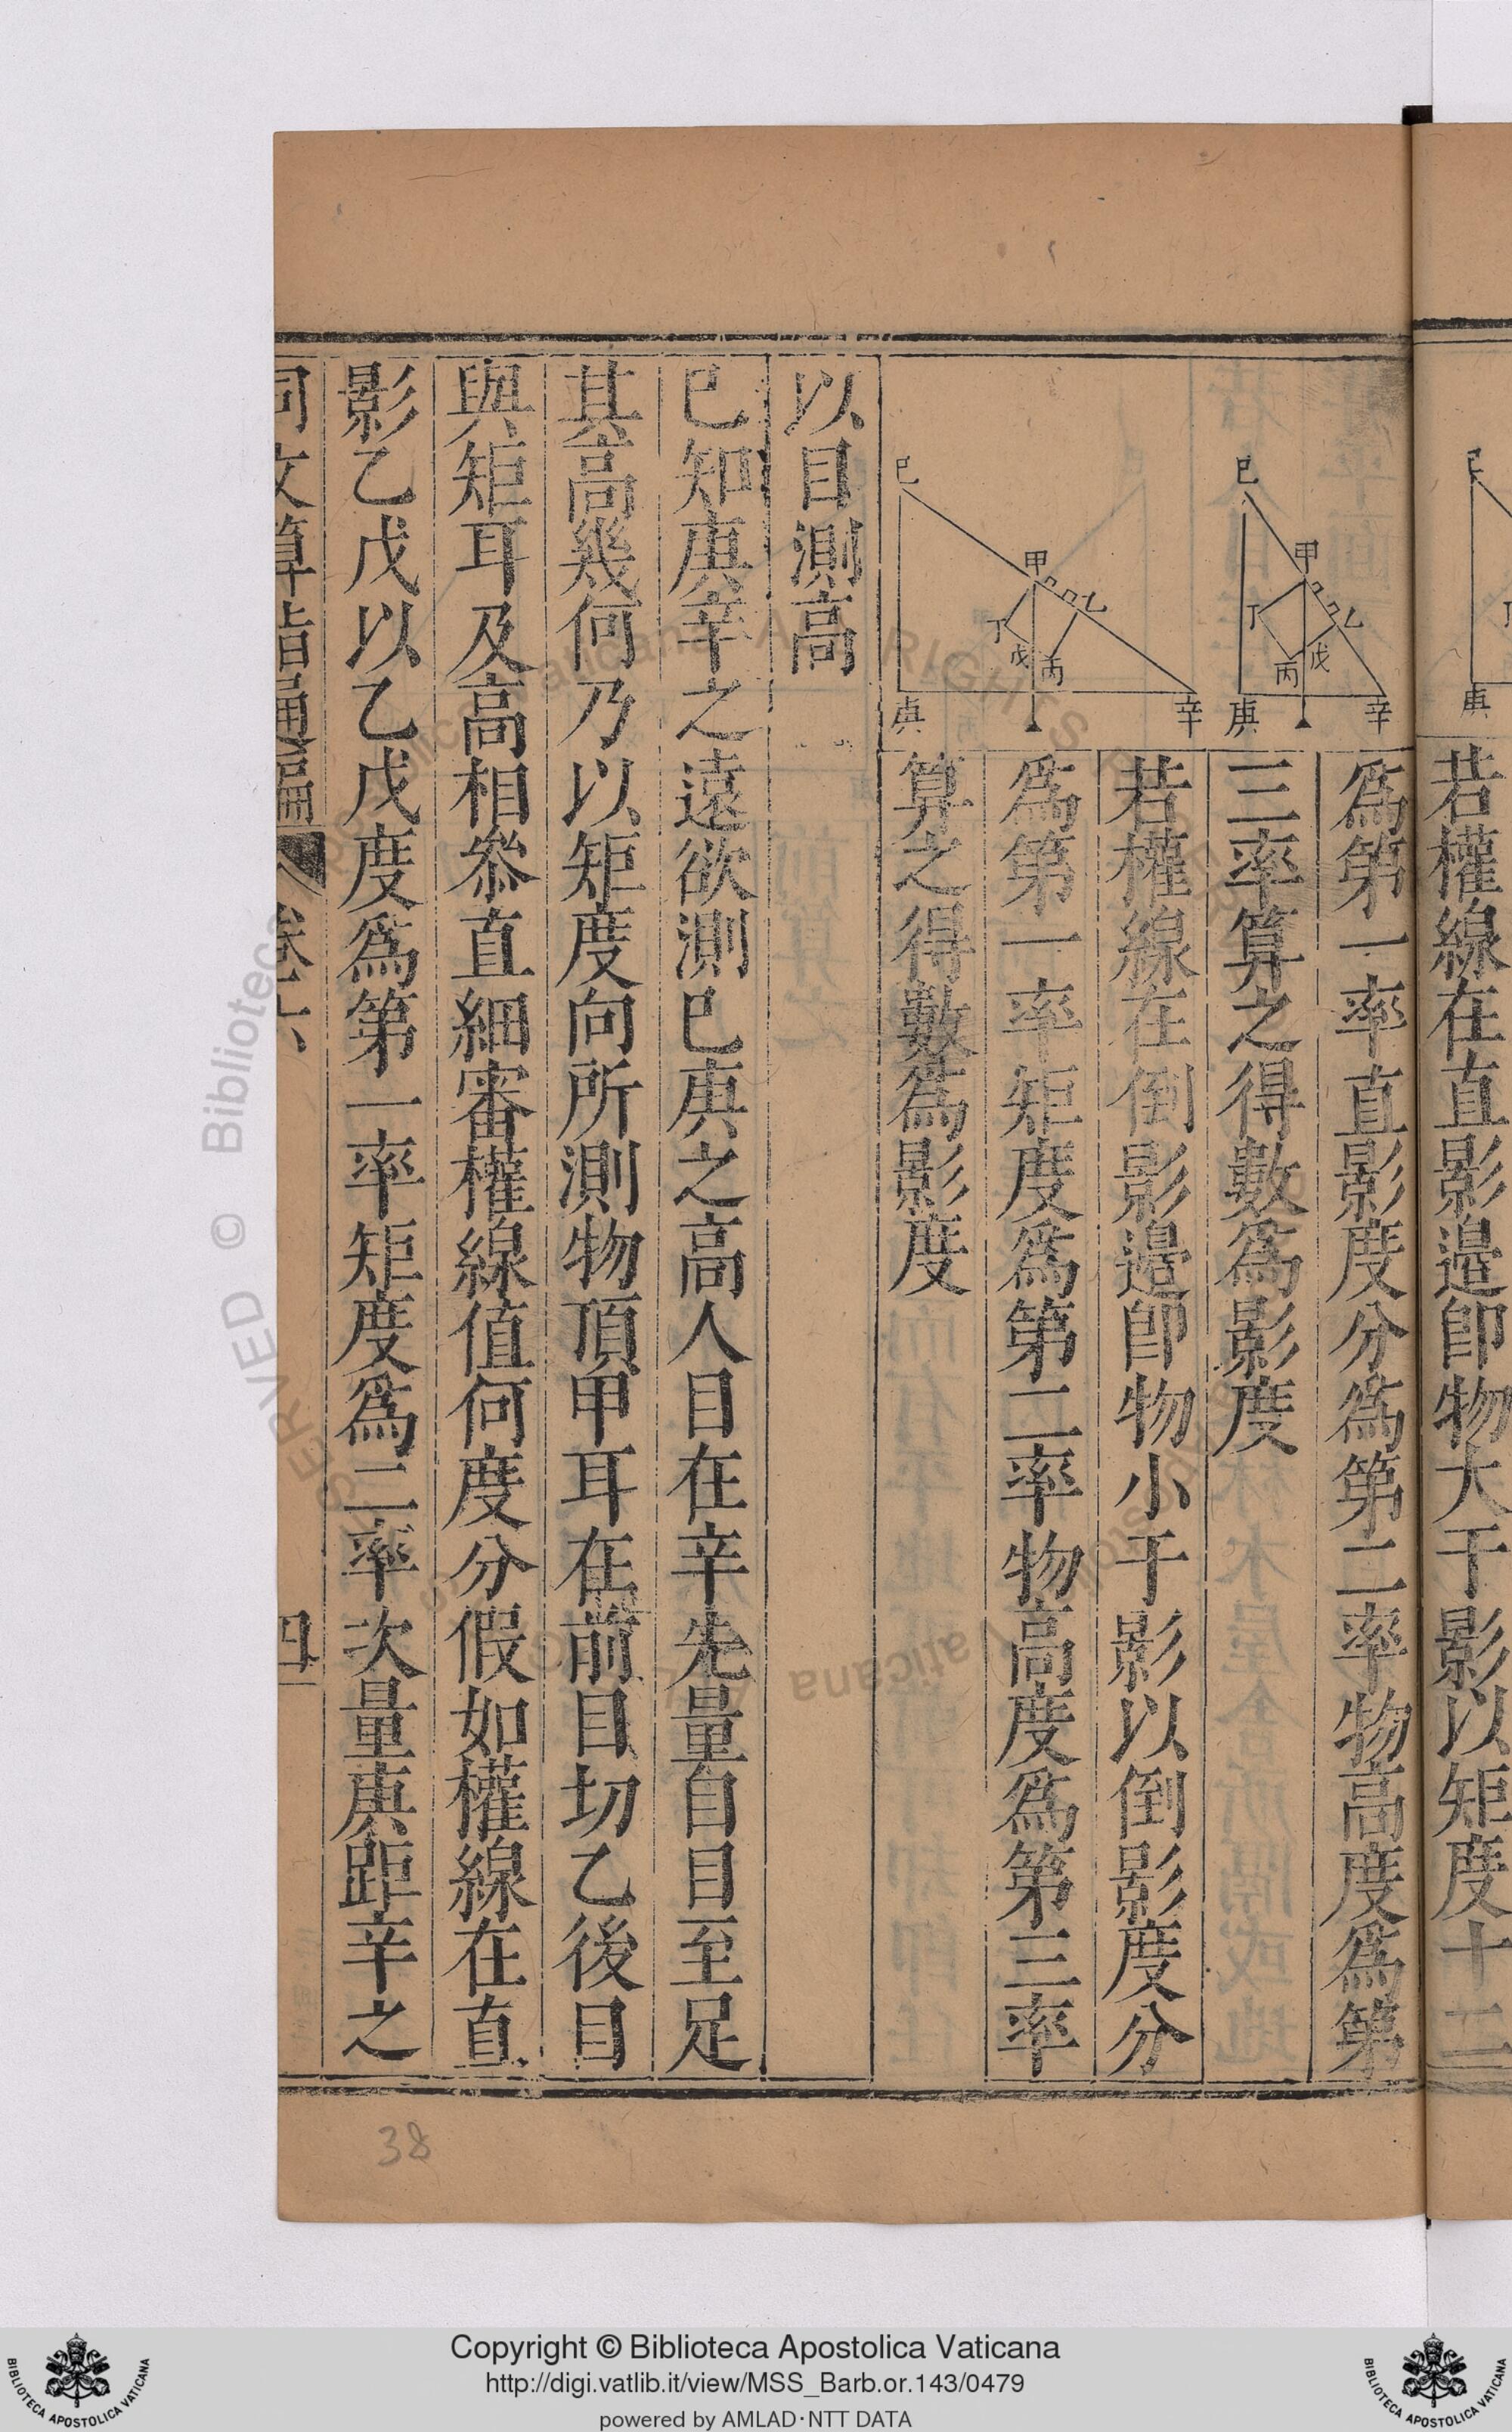 若權線在直影邉卽物大于影以矩度十二
為第一率直影度分為第二率物高度為第
三率算之得數為影度
若權線在倒影邉卽物小于影以倒影度分
為第一率矩度為第二率物高度為第三率
算之得數為影度
庚
丁
己
甲
乙
丁
戊
丙
庚
辛
己
甲
乙
丁
戊
丙
庚
辛
以目測高
已知庚辛之遠欲測巳庚之高人目在辛先量自目至足
其高幾何乃以矩度向所測物頂甲耳在前目切乙後目
與矩耳及高相叅直細審權線值何度分假如權線在直
影乙戊以乙戊度為第一率矩度為二率次量庚距辛之
同文算指通編 卷六 四
38
Biblioteca Apostolica Vaticana
Copyright © Biblioteca Apostolica Vaticana
http://digi.vatlib.it/view/MSS_Barb.or.143/0479
powered by AMLAD·NTT DATA
BIBLIOTECA APOSTOLICA VATICANA
BIBLIOTECA APOSTOLICA VATICANA